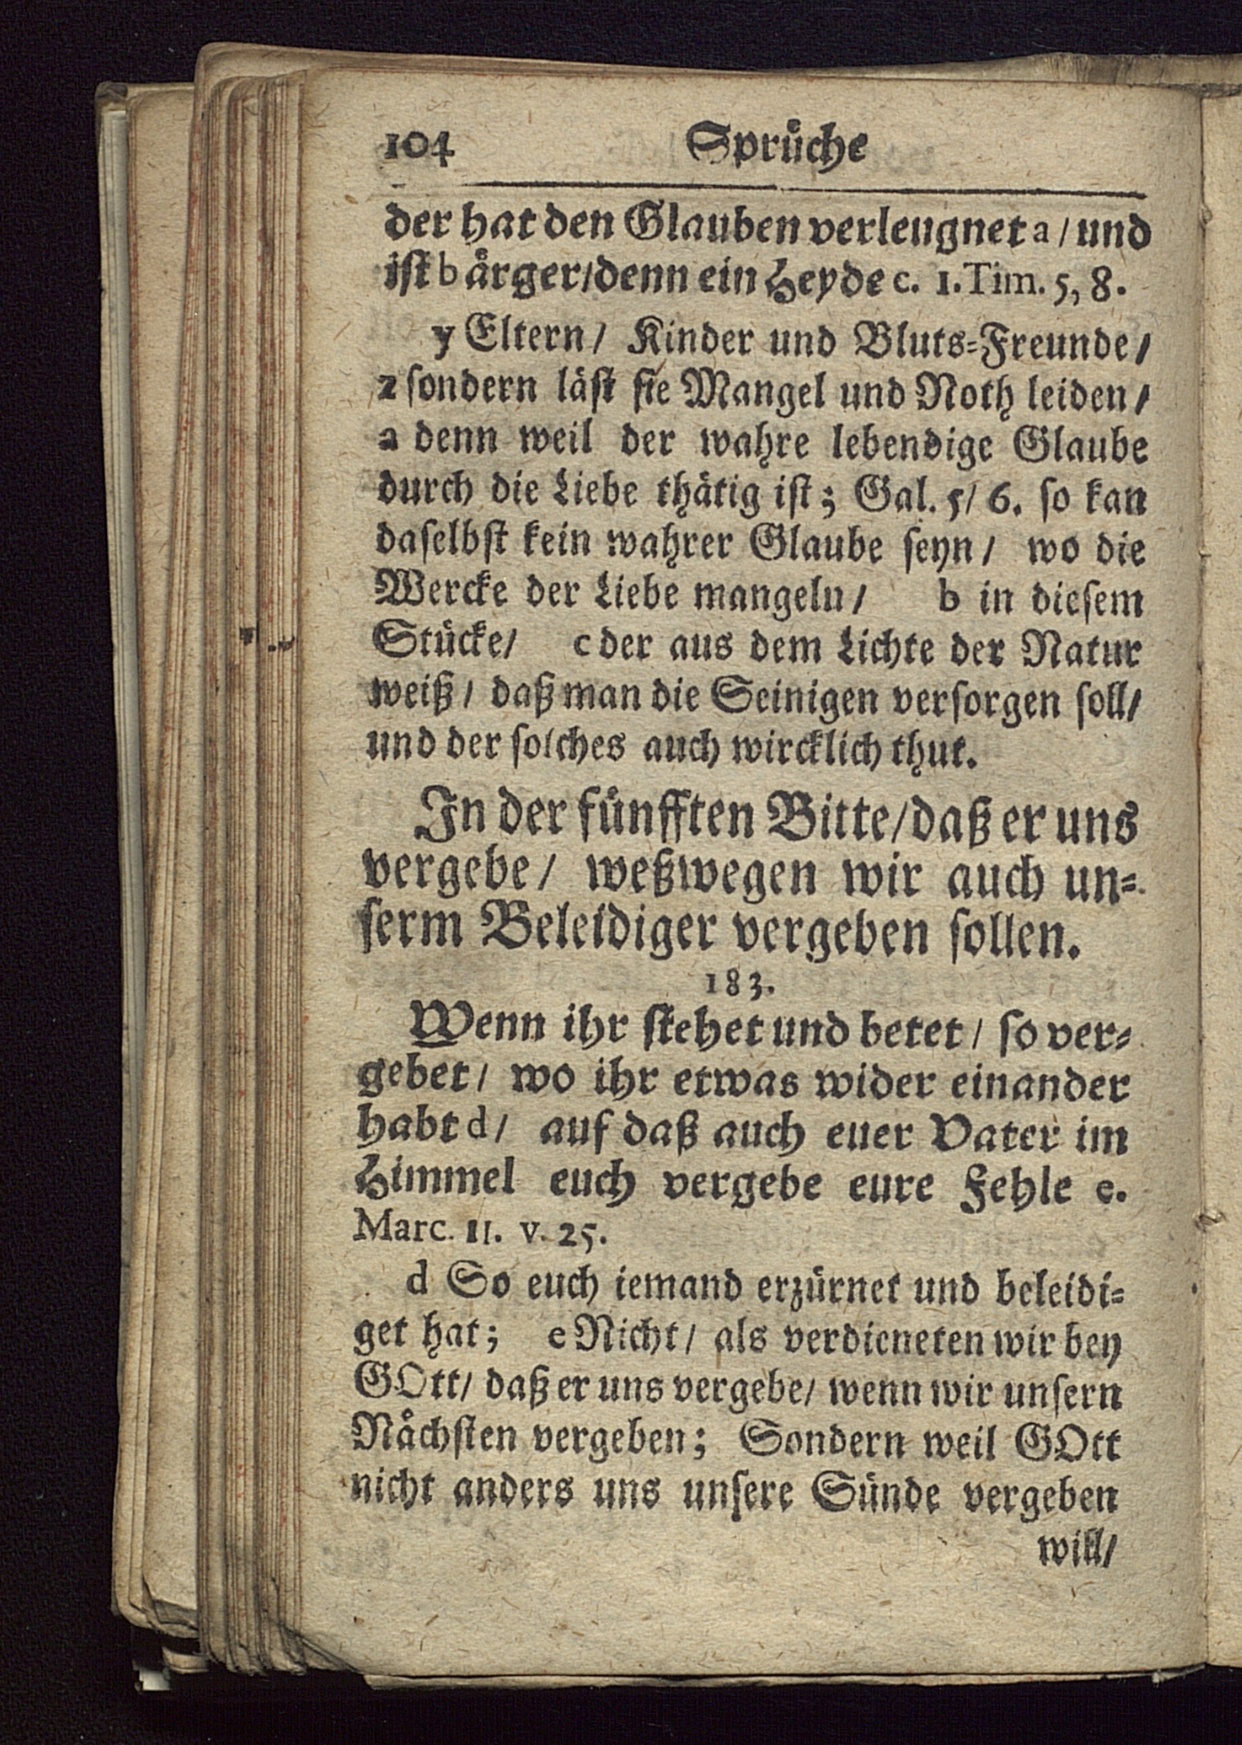 104 Sprüche
der hat den Glauben verleugnet a / und
ist b ärger/denn ein Heyde c. 1. Tim. 5, 8.
y Eltern / Kinder und Bluts-Freunde /
z sondern läst sie Mangel und Noth leiden /
a denn weil der wahre lebendige Glaube
durch die Liebe thätig ist; Gal. 5/ 6. so kan
daselbst kein wahrer Glaube seyn / wo die
Wercke der Liebe mangeln / b in diesem
Stücke/ c der aus dem Lichte der Natur
weiß / daß man die Seinigen versorgen soll/
und der solches auch wircklich thut.
In der fünfften Bitte/daß er uns
vergebe / weßwegen wir auch un-
serm Beleidiger vergeben sollen.
183.
Wenn ihr stehet und betet / so ver-
gebet / wo ihr etwas wider einander
habt d / auf daß auch euer Vater im
Himmel euch vergebe eure Fehle e.
Marc. 11. v. 25.
d So euch iemand erzürnet und beleidi-
get hat; e Nicht / als verdieneten wir bey
GOtt/ daß er uns vergebe/ wenn wir unsern
Nächsten vergeben; Sondern weil GOtt
nicht anders uns unsere Sünde vergeben
will/